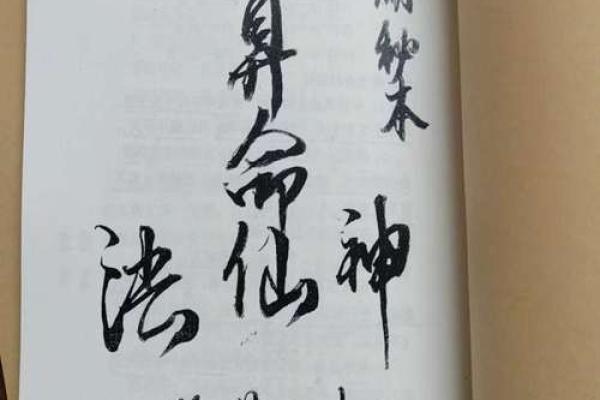 秘本
神
算命仙
法